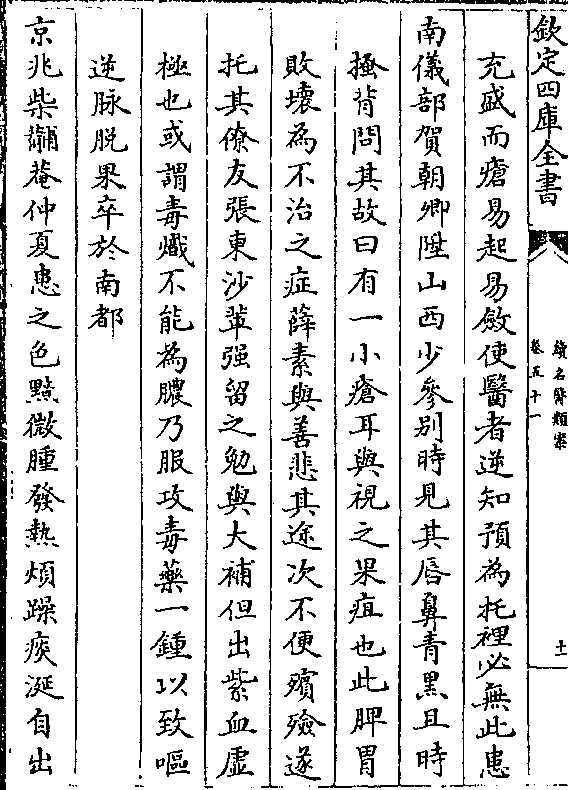 欽定四庫全書
續名醫類案
卷五十一
十
充盛而瘡易起易斂使醫者逆知預為托裡必無此患
南儀部賀朝卿陞山西少參别時見其唇鼻青黑且時
搔背問其故曰有一小瘡耳與視之果疽也此脾胃
敗壞為不治之症薛素與善悲其途次不便殯殮遂
托其僚友張東沙輩强留之勉與大補但出紫血虚
極也或謂毒熾不能為膿乃服攻毒藥一鍾以致嘔
逆脉脱果卒於南都
京兆柴黼菴仲夏患之色黯微腫發熱煩躁痰涎自出